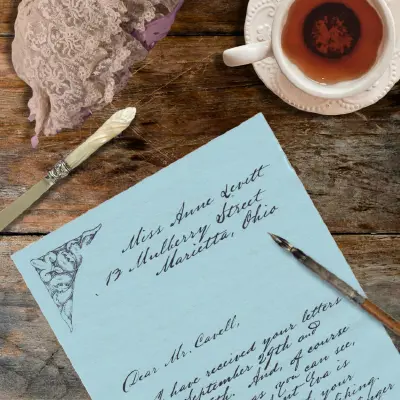 Miss Anne Levitt
13 Mulberry Street
Marietta, Ohio
Dear Mr. Cavell,
I have received your letters
September 24th and
And, of course
as you can see,
Eva is
your